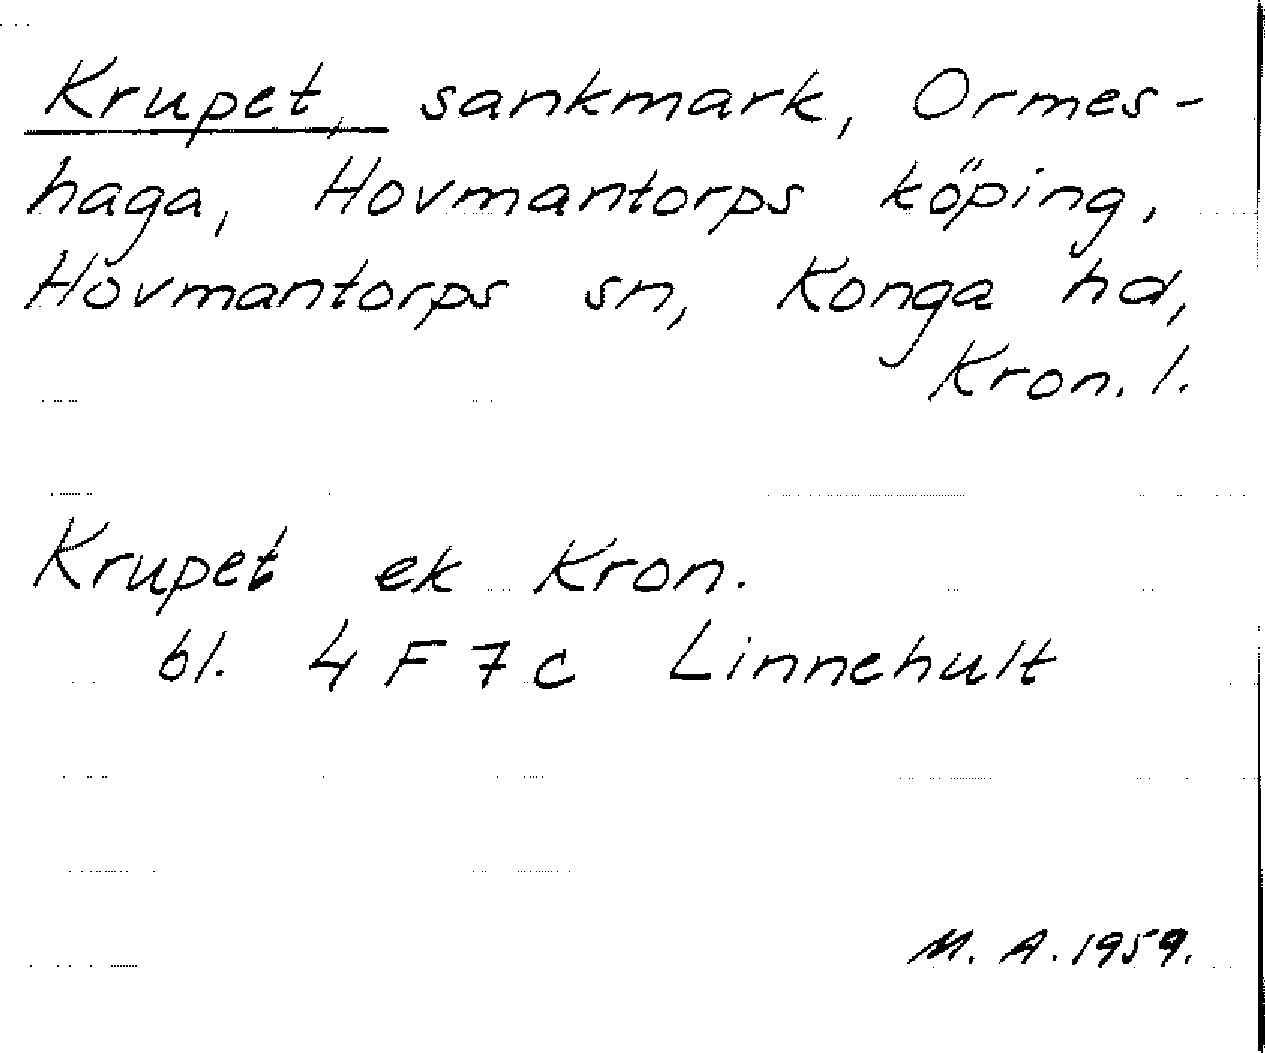 Krupet, sankmark, Ormes-
haga, Hovmantorps köping,
Hovmantorps sn, Konga hd,
Kron. l.
Krupet ek Kron.
bl. 4 F 7 c Linnehult
M. A. 1959.